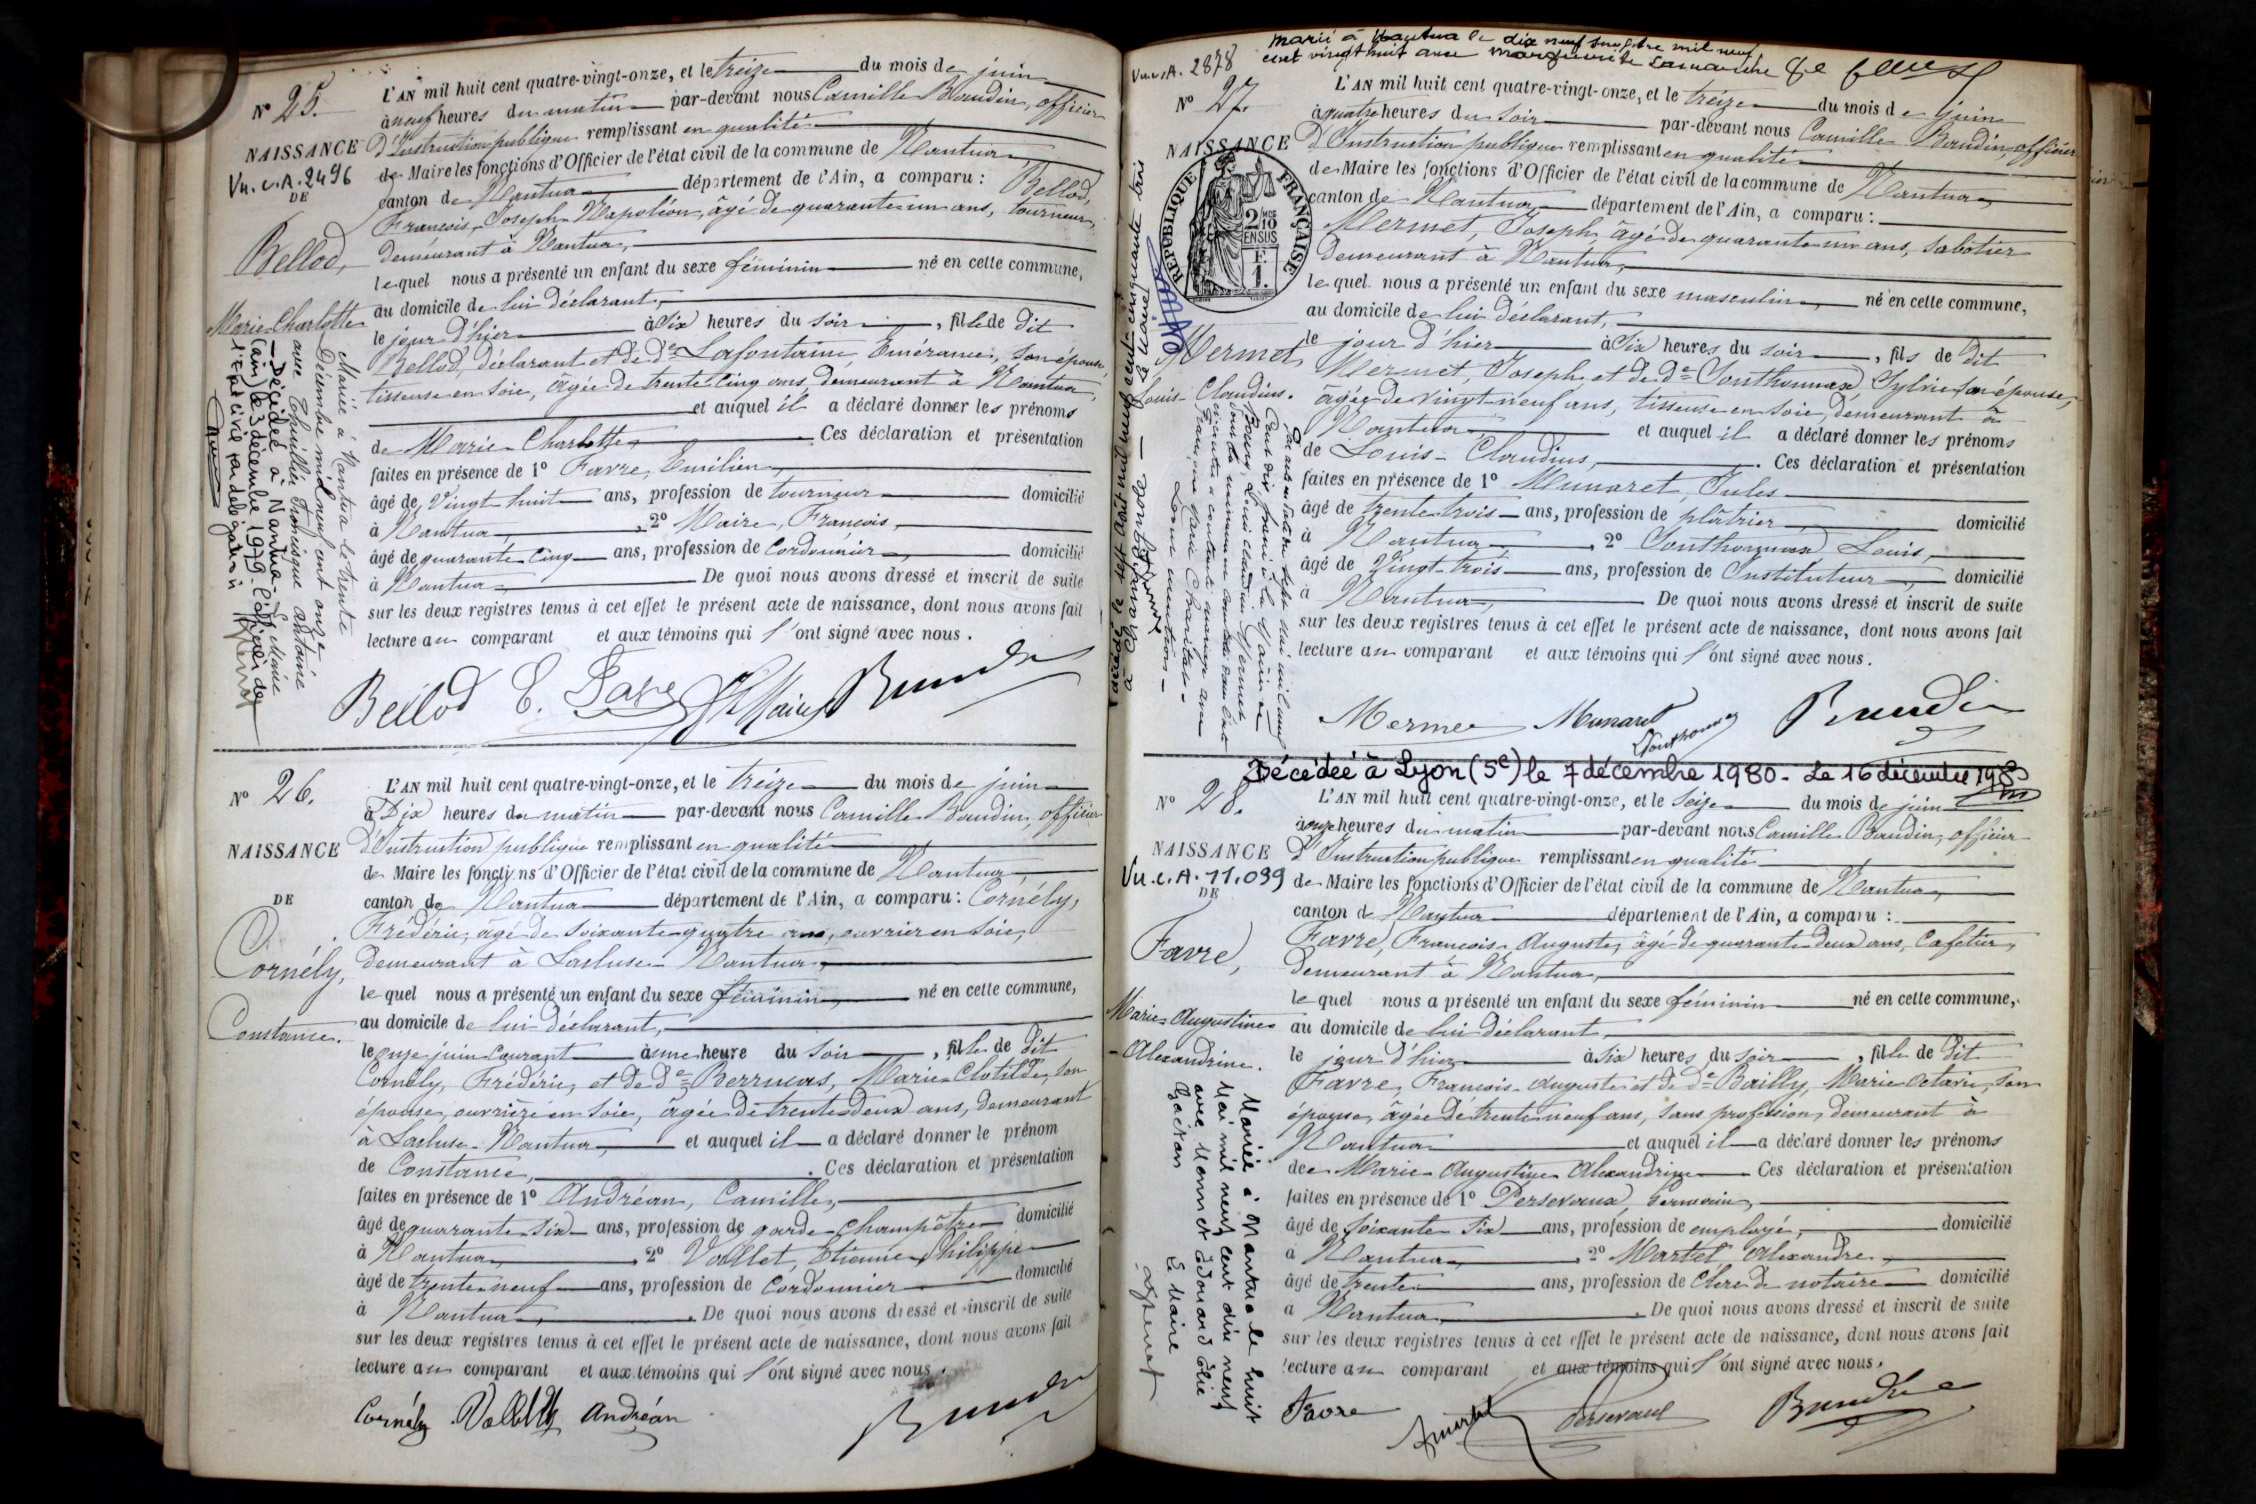 N° 25.
NAISSANCE
Vu. c. A. 2496
DE
Bellod,
Marie-Charlotte
Mariée à Nantua le trente
Décembre mil neuf cent onze
avec
- Décédée à Nantua
(Ain) le 3 décembre 1979 - L'officier de
l'Etat civil par délégation
L'AN mil huit cent quatre-vingt-onze, et le treize du mois de juin
à neuf heures du matin par-devant nous Camille Baudin, officier
d'Instruction publique remplissant en qualité
de Maire les fonctions d'Officier de l'état civil de la commune de Nantua
canton de Nantua département de l'Ain, a comparu : Bellod,
François, Joseph Napoléon, âgé de quarante un ans, tourneur,
demeurant à Nantua,
lequel nous a présenté un enfant du sexe féminin né en cette commune,
au domicile de lui déclarant,
le jour d'hier à Six heures du soir, fille de dit
Bellod, déclarant et de De Lafontaine, Emérance, son épouse,
tisseuse en soie, âgée de trente cinq ans, demeurant à Nantua,
et auquel il a déclaré donner les prénoms
de Marie-Charlotte, Ces déclaration et présentation
faites en présence de 1° Favre, Emilien,
âgé de Vingt huit ans, profession de tourneur domicilié
à Nantua, 2° Maire, François,
âgé de quarante cinq ans, profession de Cordonnier, domicilié
à Nantua De quoi nous avons dressé et inscrit de suite
sur les deux registres tenus à cet effet le présent acte de naissance, dont nous avons fait
lecture au comparant et aux témoins qui l'ont signé avec nous.
Bellod E. Favre Maire Baudin
N° 26.
NAISSANCE
DE
Cornély,
Constance.
L'AN mil huit cent quatre-vingt-onze, et le treize du mois de juin
à Dix heures du matin par-devant nous Camille Baudin, officier
d'Instruction publique remplissant en qualité
de Maire les fonctions d'Officier de l'état civil de la commune de Nantua,
canton de Nantua département de l'Ain, a comparu : Cornély,
Frédéric, âgé de Soixante quatre ans, ouvrier en soie,
demeurant à Lacluse-Nantua,
lequel nous a présenté un enfant du sexe féminin, né en cette commune,
au domicile de lui déclarant,
le onze juin courant à une heure du Soir, fille de dit
Cornély, Frédéric, et de De Marie Clotilde, son
épouse, ouvrière en Soie, âgée de trente deux ans, demeurant
à Lacluse-Nantua, et auquel il a déclaré donner le prénom
de Constance, Ces déclaration et présentation
faites en présence de 1° Andréan, Camille,
âgé de quarante six ans, profession de garde-champêtre domicilié
à Nantua, 2° Vollet, Etienne Philippe
âgé de trente neuf ans, profession de Cordonnier domicilié
à Nantua, De quoi nous avons dressé et inscrit de suite
sur les deux registres tenus à cet effet le présent acte de naissance, dont nous avons fait
lecture au comparant et aux témoins qui l'ont signé avec nous.
Cornély Vollet Andréan Baudin
Marié à Nantua le dix neuf mil neuf
cent vingt huit avec Marguerite
Vu. c. A. 2878
N° 27.
NAISSANCE
RÉPUBLIQUE FRANÇAISE
2/10 EN SUS
F. 1.
Mermet,
Louis-Claudius.
décédé le sept août mil neuf cent cinquante trois
à Champagnole - Le Maire
L'AN mil huit cent quatre-vingt-onze, et le treize du mois de juin
à quatre heures du soir par-devant nous Camille Baudin, officier
d'Instruction publique remplissant en qualité
de Maire les fonctions d'Officier de l'état civil de la commune de Nantua
canton de Nantua, département de l'Ain, a comparu :
Mermet, Joseph âgé de quarante un ans, Sabotier
demeurant à Nantua,
lequel nous a présenté un enfant du sexe masculin, né en cette commune,
au domicile de lui déclarant,
le jour d'hier à Six heures du soir, fils de dit
Mermet, Joseph et de De Southonnax, Sylvie son épouse,
âgée de vingt neuf ans, tisseuse en soie, demeurant à
Nantua et auquel il a déclaré donner les prénoms
de Louis-Claudius, Ces déclaration et présentation
faites en présence de 1° Munaret, Jules
âgé de trente trois ans, profession de plâtrier domicilié
à Nantua, 2° Southonnax, Louis,
âgé de Vingt-trois ans, profession de Instituteur, domicilié
à Nantua, De quoi nous avons dressé et inscrit de suite
sur les deux registres tenus à cet effet le présent acte de naissance, dont nous avons fait
lecture au comparant et aux témoins qui l'ont signé avec nous.
Mermet Munaret Southonnax Baudin
Décédée à Lyon (5e) le 7 décembre 1980 - Le 16 décembre 1980
N° 28.
NAISSANCE
Vu. c. A. 11.039
DE
Favre,
Marie-Augustine
-Alexandrine.
Mariée à Nantua le huit
Mai mil neuf cent dix neuf
avec Monnet Edouard Elie
Gaëtan Le Maire
L'AN mil huit cent quatre-vingt-onze, et le Seize du mois de juin
à onze heures du matin par-devant nous Camille Baudin, officier
d'Instruction publique remplissant en qualité
de Maire les fonctions d'Officier de l'état civil de la commune de Nantua,
canton de Nantua département de l'Ain, a comparu :
Favre, François-Auguste, âgé de quarante deux ans, Cafetier,
demeurant à Nantua,
lequel nous a présenté un enfant du sexe féminin né en cette commune,
au domicile de lui déclarant,
le jour d'hier à Six heures du soir, fille de dit
Favre, François-Auguste et de De Bailly, Marie Octavie, son
épouse, âgée de trente neuf ans, sans profession, demeurant à
Nantua et auquel il a déclaré donner les prénoms
de Marie Augustine Alexandrine Ces déclaration et présentation
faites en présence de 1° Persevaux, Germain,
âgé de Soixante Six ans, profession de employé, domicilié
à Nantua, 2° Martel, Alexandre,
âgé de trente ans, profession de Clerc de notaire domicilié
à Nantua, De quoi nous avons dressé et inscrit de suite
sur les deux registres tenus à cet effet le présent acte de naissance, dont nous avons fait
lecture au comparant et aux témoins qui l'ont signé avec nous.
Favre Martel Persevaux Baudin